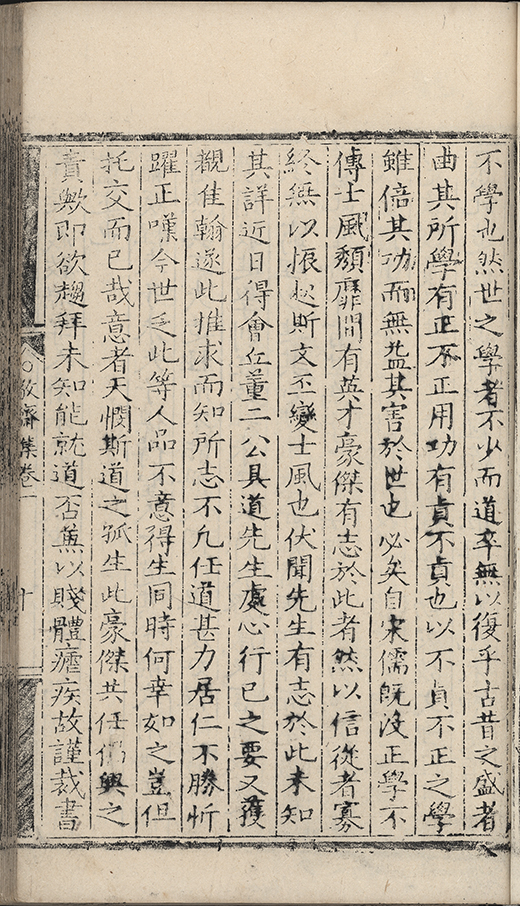 不學也然世之學者不少而道卒無以復乎古昔之盛者
由其所學有正不正用功有貞不貞也以不貞不正之學
雖倍其功而無益其害於世也必矣自宋儒既没正學不
傳士風頽靡間有英才豪傑有志於此者然以信從者寡
終無以振起斯文丕變士風也伏聞先生有志於此未知
其詳近日得會丘董二公具道先生處心行已之要又獲
觀佳翰遂此推求而知所志不凡任道甚力居仁不勝忻
躍正嘆今世乏此等人品不意得生同時何幸如之豈但
托交而已哉意者天憫斯道之孤生此豪傑共任興之
責歟即欲趨拜未知能就道否兼以賤體瘧疾故謹裁書
敬齋集卷一
十